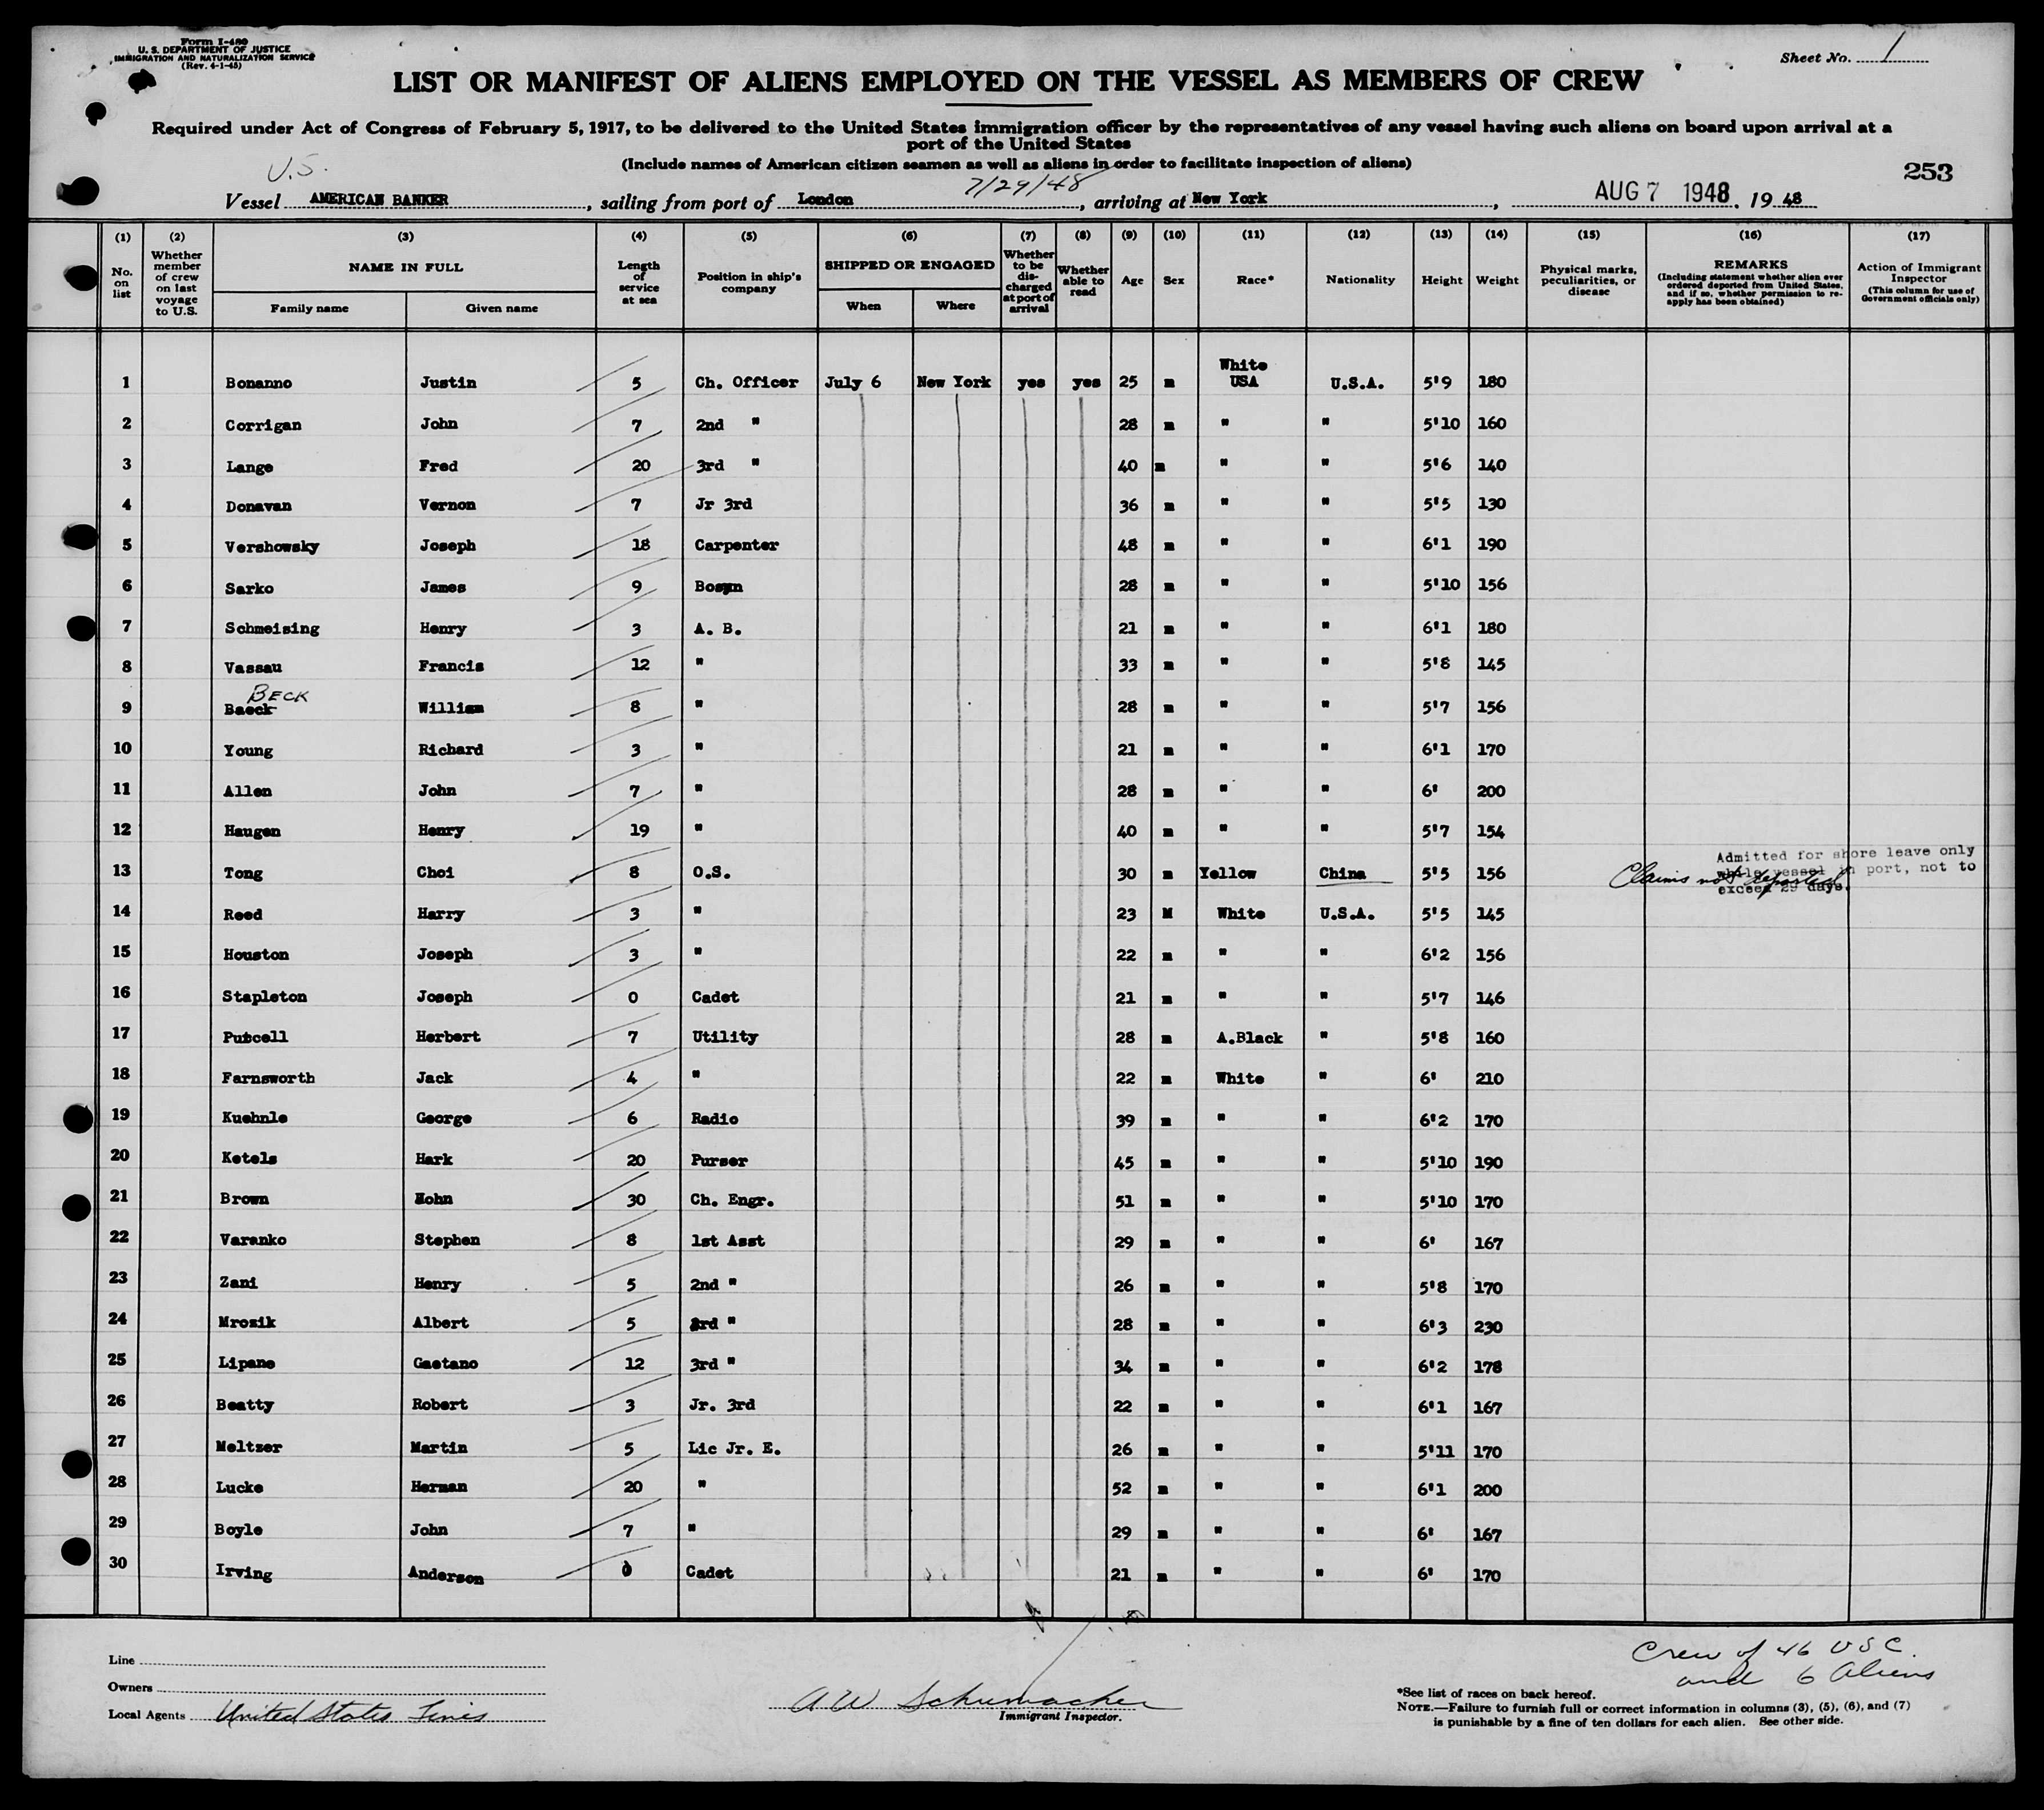 Form I-480
U. S. DEPARTMENT OF JUSTICE
IMMIGRATION AND NATURALIZATION SERVICE
(Rev. 4-1-45)
Sheet No. 1
LIST OR MANIFEST OF ALIENS EMPLOYED ON THE VESSEL AS MEMBERS OF CREW
Required under Act of Congress of February 5, 1917, to be delivered to the United States immigration officer by the representatives of any vessel having such aliens on board upon arrival at a
port of the United States
(Include names of American citizen seamen as well as aliens in order to facilitate inspection of aliens)
253
U.S.
7/29/48
Vessel AMERICAN BANKER, sailing from port of London, arriving at New York, AUG 7 1948, 19 48
(1) (2) (3) (4) (5) (6) (7) (8) (9) (10) (11) (12) (13) (14) (15) (16) (17)
No. on list
Whether member of crew on last voyage to U.S.
NAME IN FULL
Family name Given name
Length of service at sea
Position in ship's company
SHIPPED OR ENGAGED
When Where
Whether to be discharged at port of arrival
Whether able to read
Age Sex Race* Nationality Height Weight
Physical marks, peculiarities, or disease
REMARKS
(Including statement whether alien ever ordered deported from United States, and if so, whether permission to reapply has been obtained)
Action of Immigrant Inspector
(This column for use of Government officials only)
1 Bonanno Justin 5 Ch. Officer July 6 New York yes yes 25 m White USA U.S.A. 5'9 180
2 Corrigan John 7 2nd " 28 m " " 5'10 160
3 Lange Fred 20 3rd " 40 m " " 5'6 140
4 Donavan Vernon 7 Jr 3rd 36 m " " 5'5 130
5 Vershowsky Joseph 18 Carpenter 48 m " " 6'1 190
6 Sarko James 9 Bosun 28 m " " 5'10 156
7 Schmeising Henry 3 A. B. 21 m " " 6'1 180
8 Vassau Francis 12 " 33 m " " 5'8 145
BECK
9 Baeck William 8 " 28 m " " 5'7 156
10 Young Richard 3 " 21 m " " 6'1 170
11 Allen John 7 " 28 m " " 6' 200
12 Haugen Henry 19 " 40 m " " 5'7 154
13 Tong Choi 8 O.S. 30 m Yellow China 5'5 156 Claims not deported
Admitted for shore leave only
while vessel in port, not to
exceed 29 days.
14 Reed Harry 3 " 23 M White U.S.A. 5'5 145
15 Houston Joseph 3 " 22 m " " 6'2 156
16 Stapleton Joseph 0 Cadet 21 m " " 5'7 146
17 Purcell Herbert 7 Utility 28 m A.Black " 5'8 160
18 Farnsworth Jack 4 " 22 m White " 6' 210
19 Kuehnle George 6 Radio 39 m " " 6'2 170
20 Ketels Hark 20 Purser 45 m " " 5'10 190
21 Brown John 30 Ch. Engr. 51 m " " 5'10 170
22 Varanko Stephen 8 1st Asst 29 m " " 6' 167
23 Zani Henry 5 2nd " 26 m " " 5'8 170
24 Mrozik Albert 5 3rd " 28 m " " 6'3 230
25 Lipane Gaetano 12 3rd " 34 m " " 6'2 178
26 Beatty Robert 3 Jr. 3rd 22 m " " 6'1 167
27 Meltzer Martin 5 Lic Jr. E. 26 m " " 5'11 170
28 Lucke Herman 20 " 52 m " " 6'1 200
29 Boyle John 7 " 29 m " " 6' 167
30 Irving Anderson 0 Cadet 21 m " " 6' 170
Crew of 46 USC
and 6 Aliens
Line
Owners
Local Agents United States Lines
A W Schumacher
Immigrant Inspector.
*See list of races on back hereof.
NOTE.—Failure to furnish full or correct information in columns (3), (5), (6), and (7)
is punishable by a fine of ten dollars for each alien. See other side.